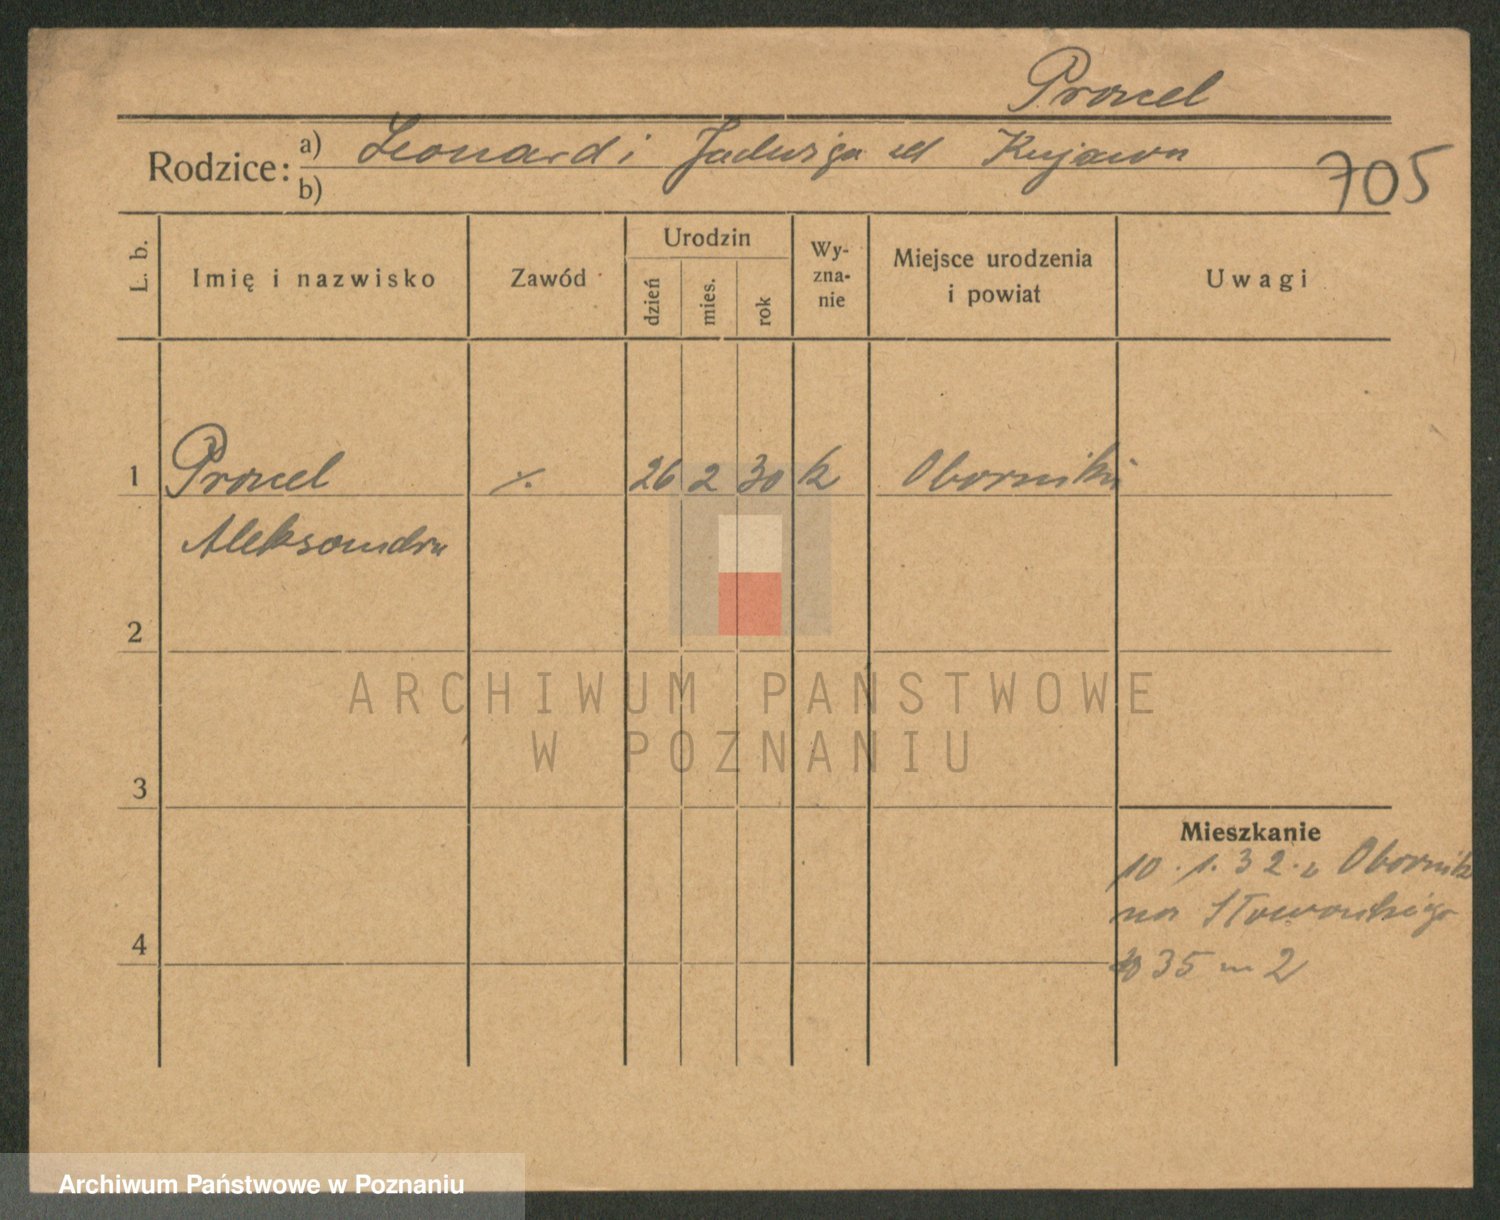 Procel
Rodzice: a) Leonard i Jadwiga Kujawa
b)
705
L. b.
Imię i nazwisko
Zawód
Urodzin
dzień
mies.
rok
Wy-
zna-
nie
Miejsce urodzenia
i powiat
Uwagi
1 Procel 26 2 30 k Oborniki
Aleksandra
2
ARCHIWUM PAŃSTWOWE
W POZNANIU
3
Mieszkanie
10.1.32. Obornik
na
4
35 m 2
Archiwum Państwowe w Poznaniu